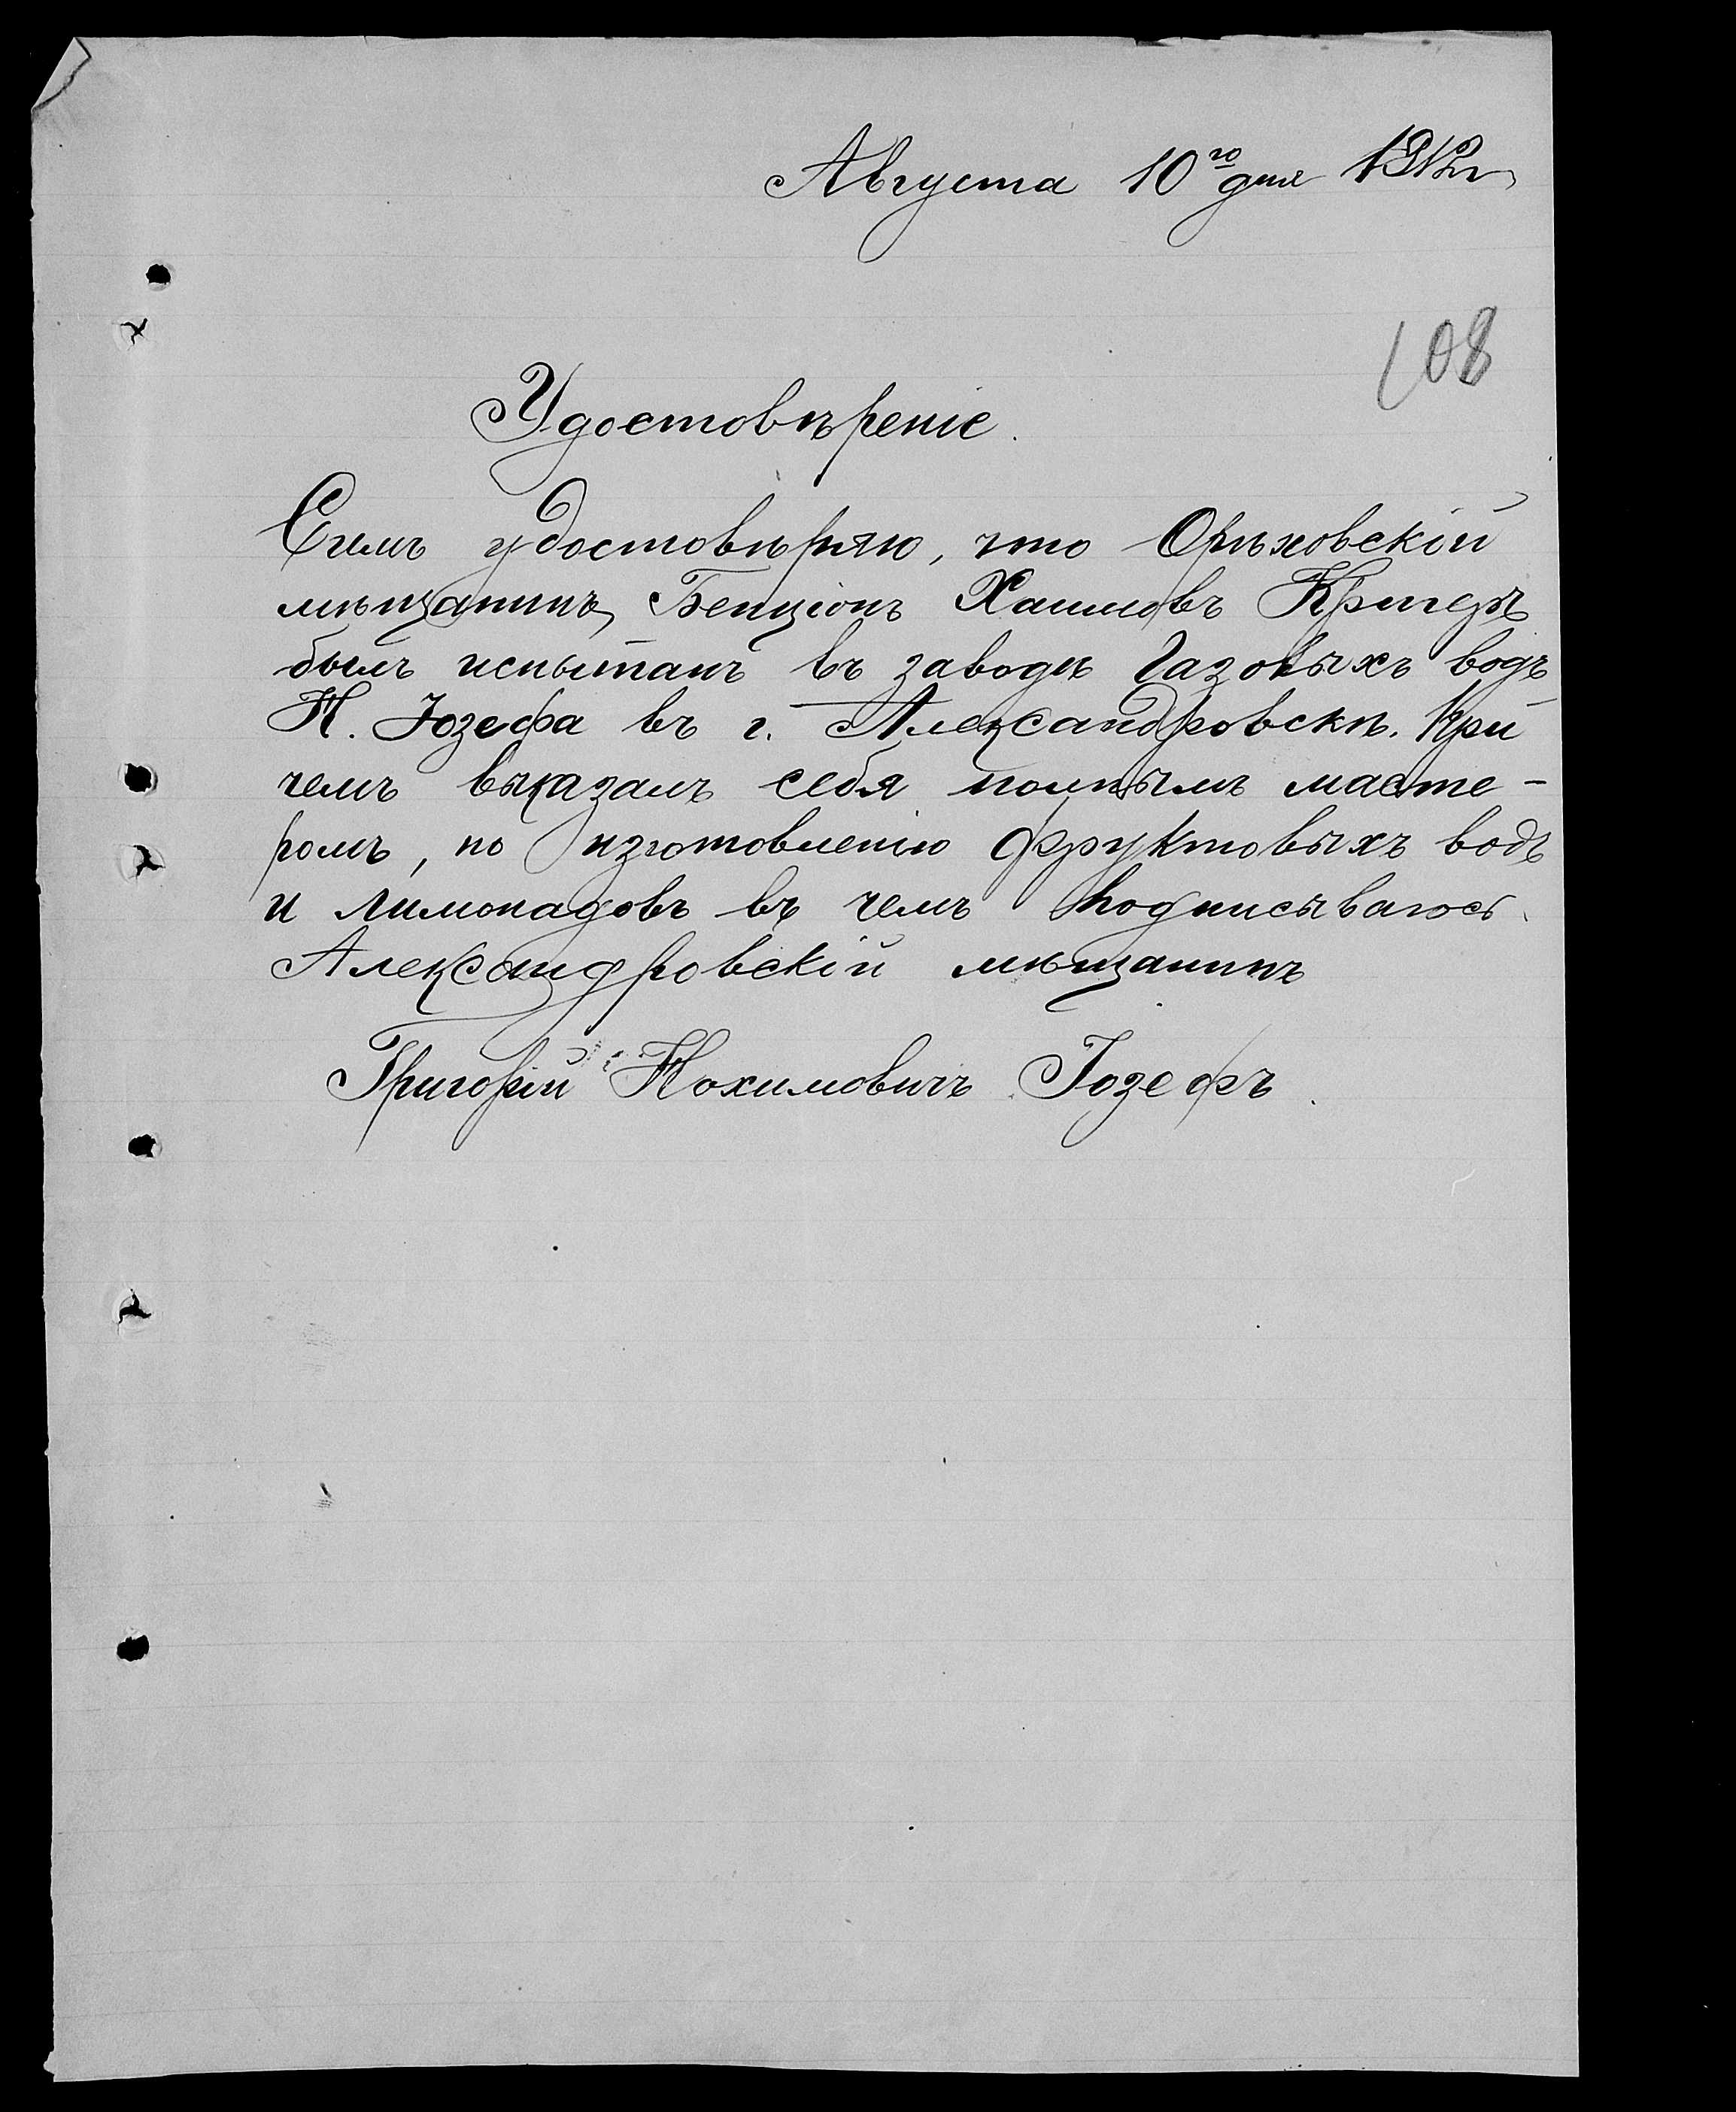 Августа 10го дня 1912г
108
Удостовѣреніе.
Симъ удостовѣряю, что Орѣховскій
мѣщанинъ, Бенціонъ Хаимовъ Кригеръ
былъ испытанъ въ заводѣ Газовыхъ водъ
Н. Іозефа въ г. Александровскѣ. При
чемъ выказалъ себя полнымъ масте-
ромъ, по изготовленію фруктовыхъ водъ
и лимонадовъ въ чемъ подписываюсь.
Александровскій мѣщанинъ
Григорій Нохимовичъ Іозефъ.